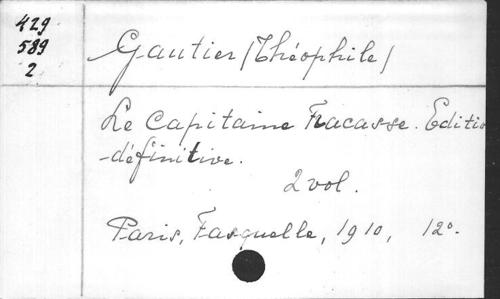 429
589
2
Gautier (Théophile)
Le Capitaine Fracasse. Editio
-définitive.
2 vol.
Paris, Fasquelle, 1910, 12º.